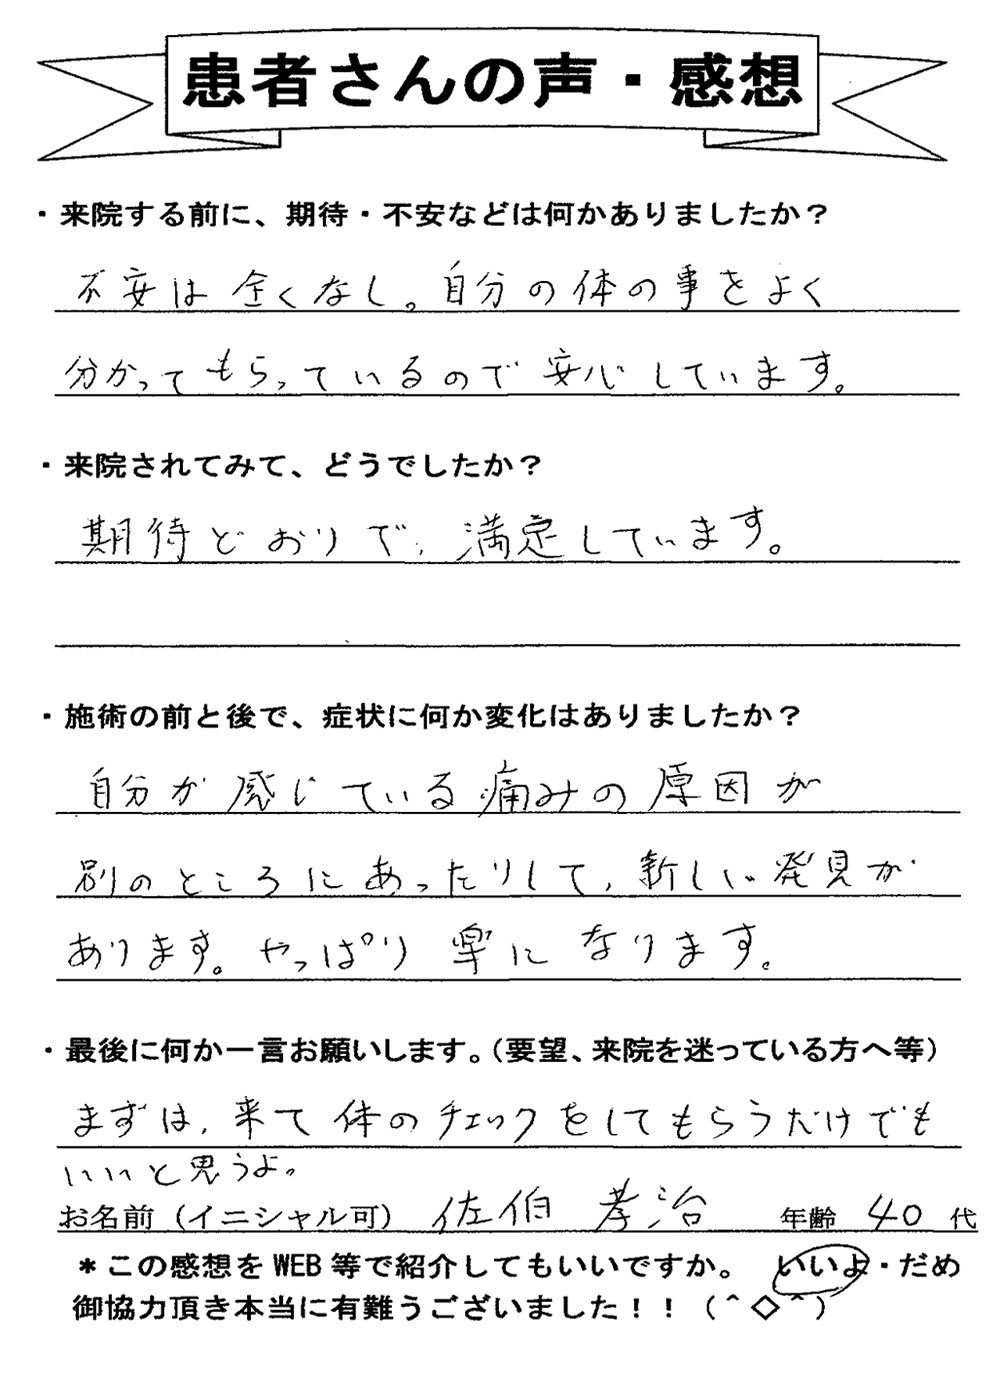 患者さんの声・感想
・来院する前に、期待・不安などは何かありましたか？
不安は全くなし。自分の体の事をよく
分かってもらっているので安心しています。
・来院されてみて、どうでしたか？
期待どおりで、満足しています。
・施術の前と後で、症状に何か変化はありましたか？
自分が感じている痛みの原因が
別のところにあったりして、新しい発見が
あります。やっぱり楽になります。
・最後に何か一言お願いします。（要望、来院を迷っている方へ等）
まずは、来て体のチェックをしてもらうだけでも
いいと思うよ。
お名前（イニシャル可） 佐伯 孝治 年齢 40 代
＊この感想をWEB等で紹介してもいいですか。 いいよ・だめ
御協力頂き本当に有難うございました！！（＾◇＾）